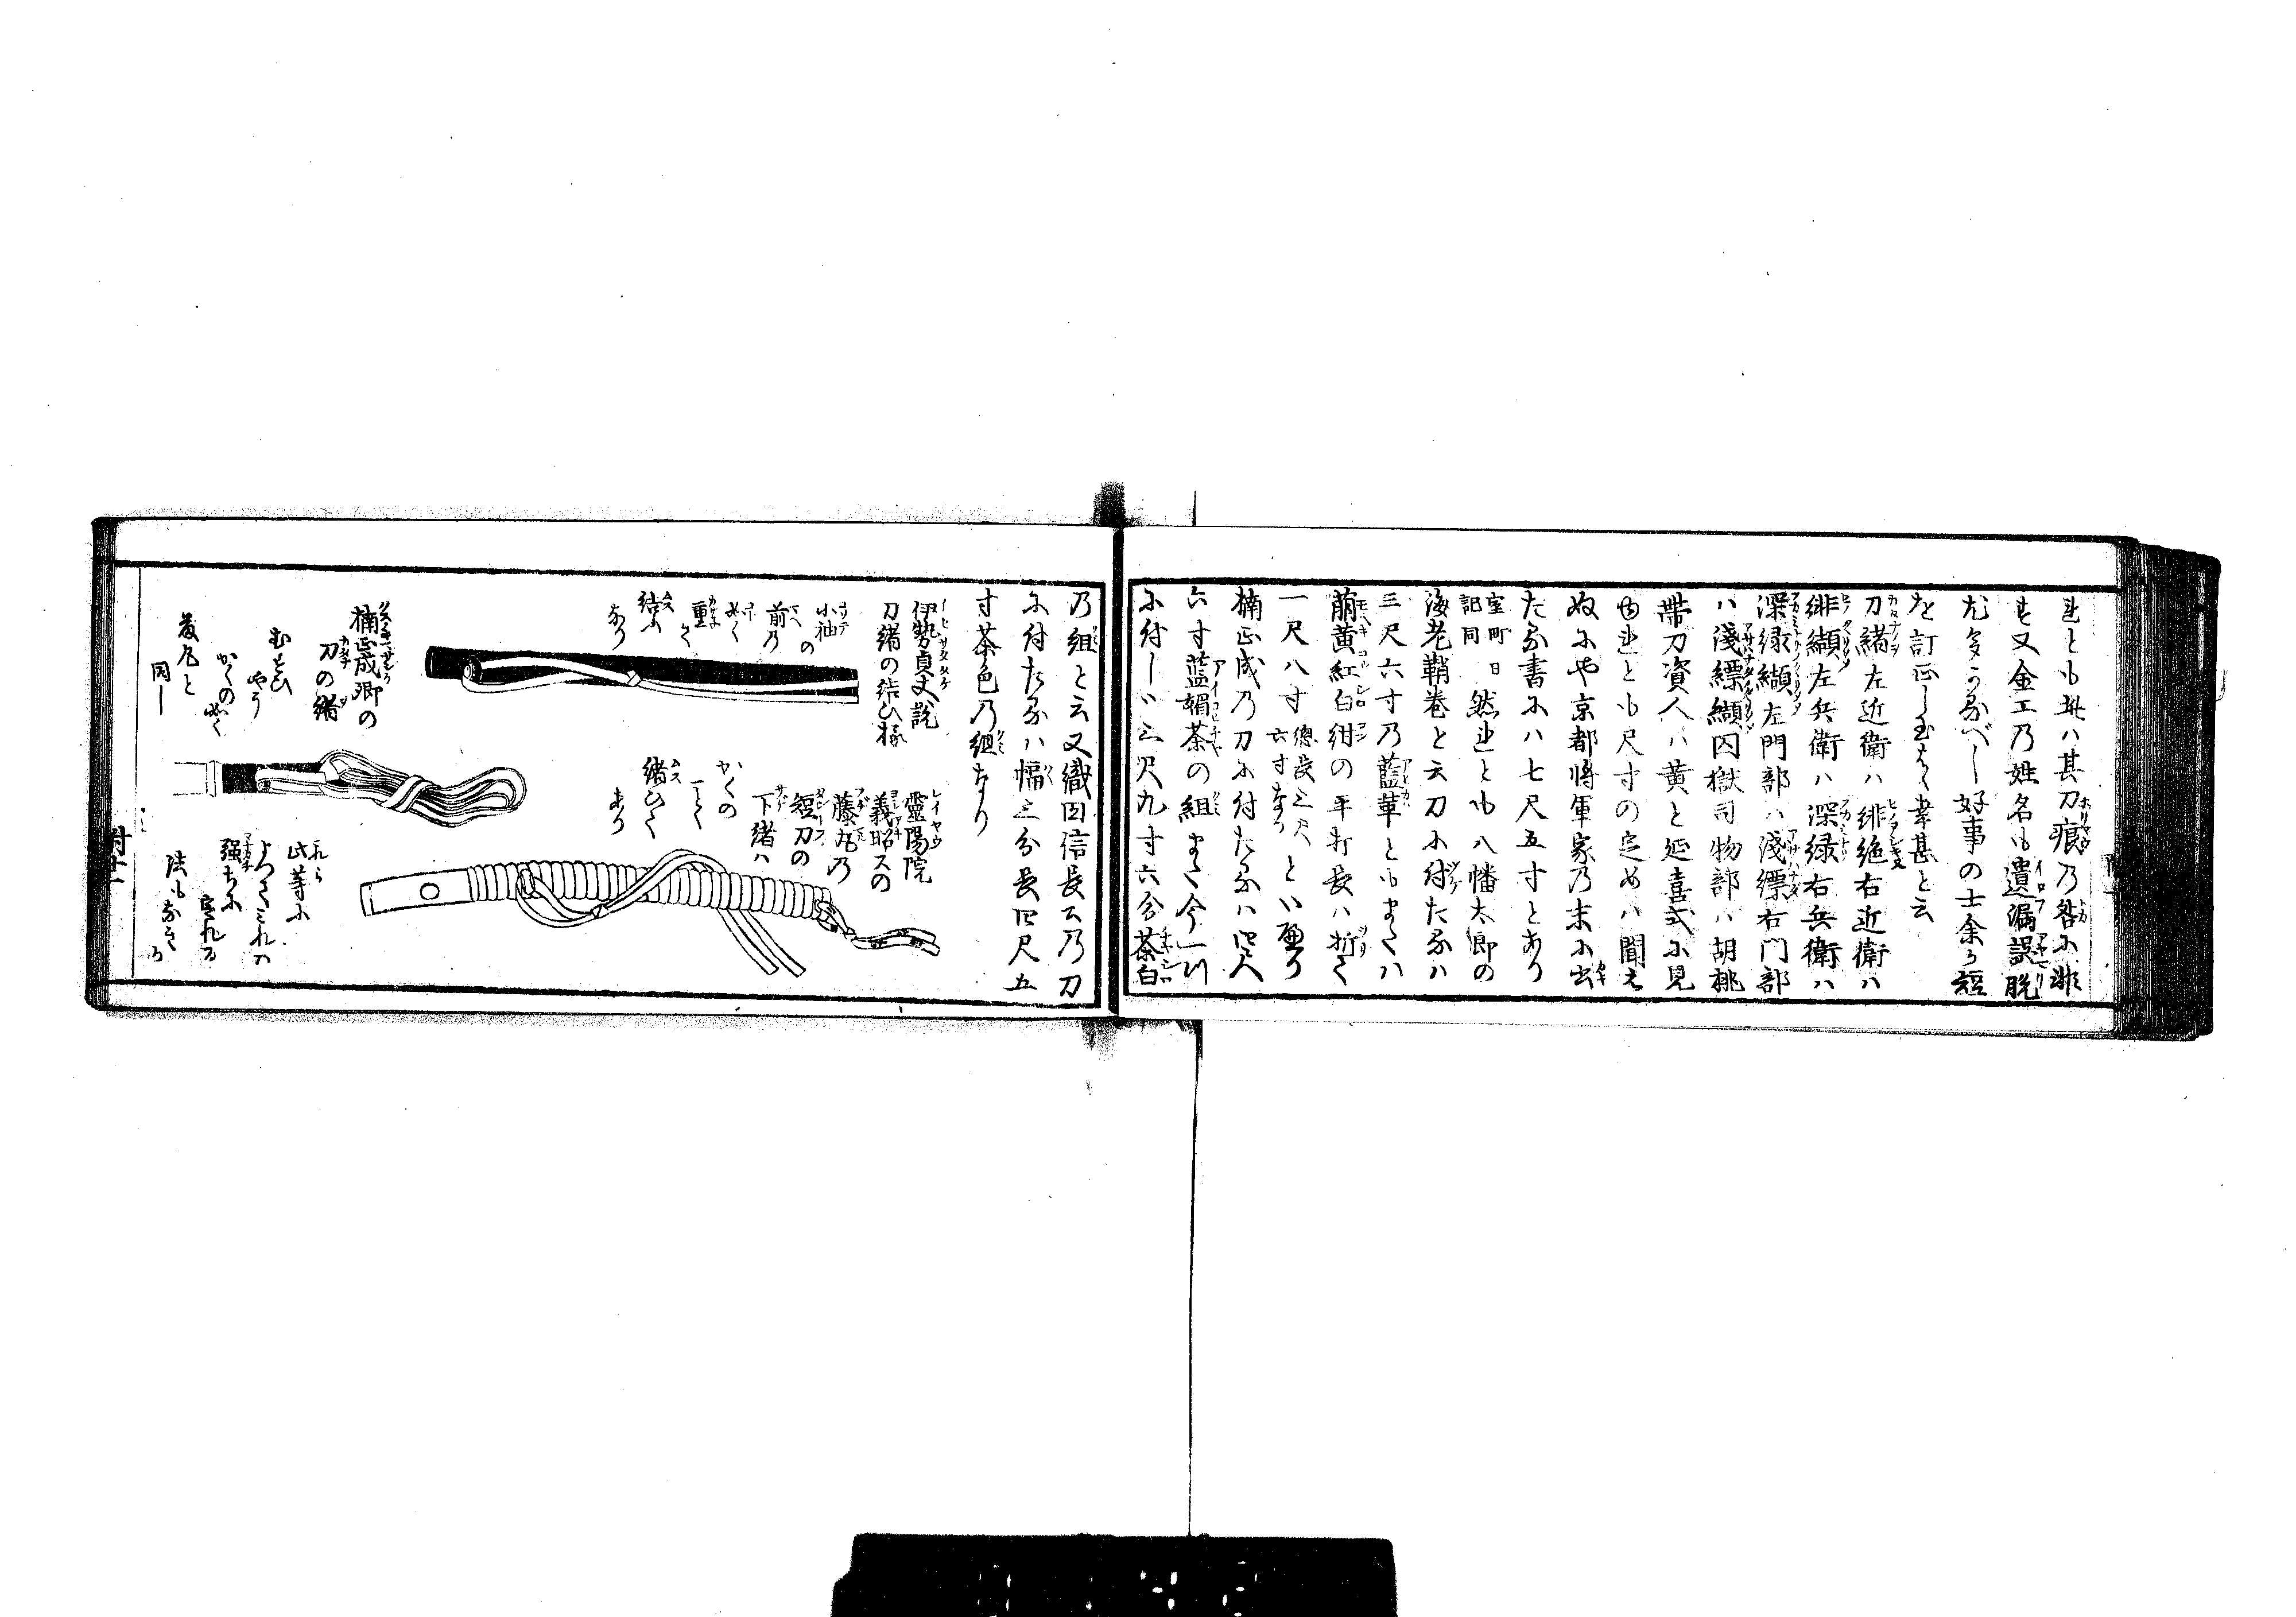 れとも其ハ甚刀痕乃咎に非
す又金工乃姓名も遺漏誤脱
尤多かるべし好事の士余か短
を訂正し玉はゝ幸甚と云
刀緒左近衛ハ緋絁右近衛ハ
緋纈左兵衛ハ深緑右兵衛ハ
深緑纈左門部ハ淺縹右門部
ハ淺縹纈囚獄司物部ハ胡桃
帶刀資人ハ黄と延喜式に見
ゆれとも尺寸の定めハ聞え
ぬにや京都將軍家乃末に出
たる書にハ七尺五寸とあり
室町日記同 然れとも八幡太郎の
海老鞘巻と云刀に付たるハ
三尺六寸乃藍革ともまたハ
萠黄紅白紺の平打長ハ折て
一尺八寸 總長三尺六寸なり とい
楠正成乃刀に付たるハ
六寸藍媚茶の組また今一
に付しハ三尺九寸六分茶白
乃組と云又織田信長公乃刀
に付たるハ幅三分長四尺五
寸茶色乃組なり
伊勢貞丈説
刀緒の結ひ様
小袖の
前乃
如く
重て
結ふ
なり
靈陽院
義昭公の
藤丸乃
短刀の
下緒ハ
かくの
ことく
緒ひて
あり
楠正成卿の
刀の緒
むすひ
やう
かくの
如く
藤丸と
同し
此等に
よつてみれハ
強ちに
定れる
法もなきか